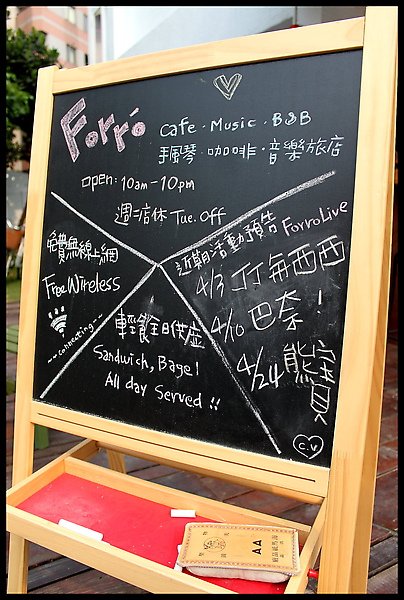 Forró
Cafe · Music · B&B
手風琴 · 咖啡 · 音樂旅店
open: 10am-10pm
週二店休 Tue. off
免費無線上網
Free Wireless
~~connecting~~
近期活動預告 Forro Live
4/3 JJ 毎西西
4/10 巴奈！
4/24 熊寶貝
輕食全日供應
Sandwich, Bagel
All day Served !!
C.V
AA